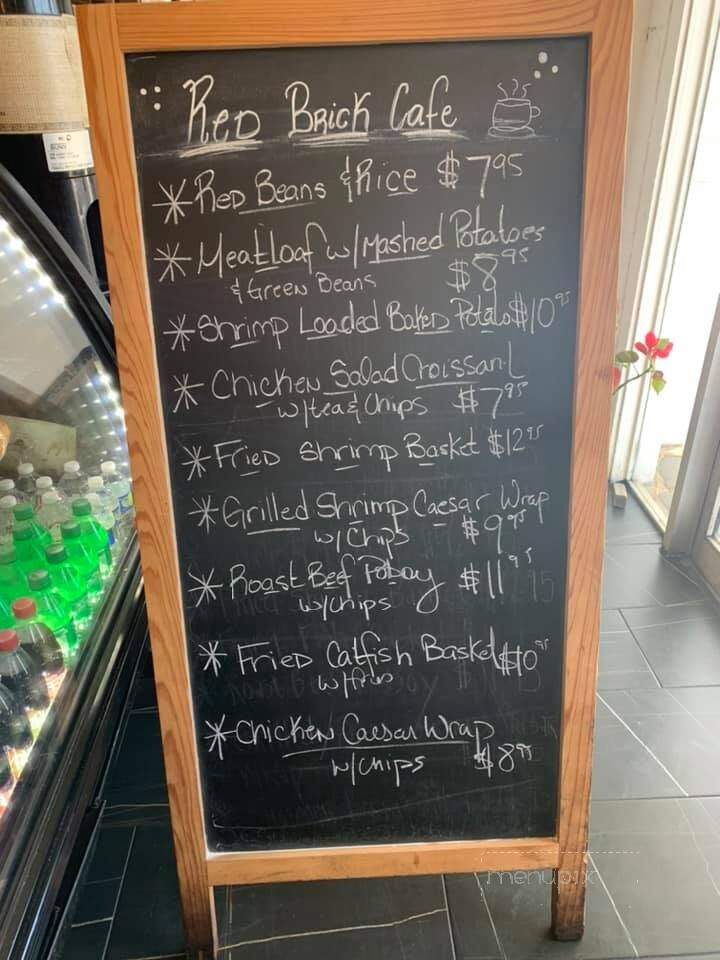 Red Brick Cafe
* Red Beans & Rice $7.95
* Meatloaf w/Mashed Potatoes
& Green Beans $8.95
* Shrimp Loaded Baked Potato $10.95
* Chicken Salad Croissant
w/tea & Chips $7.95
* Fried Shrimp Basket $12.95
* Grilled Shrimp Caesar Wrap
w/Chips $9.95
* Roast Beef Poboy $11.95
w/chips
* Fried Catfish Basket $10.95
w/fries
* Chicken Caesar Wrap
w/chips $8.95
menupix